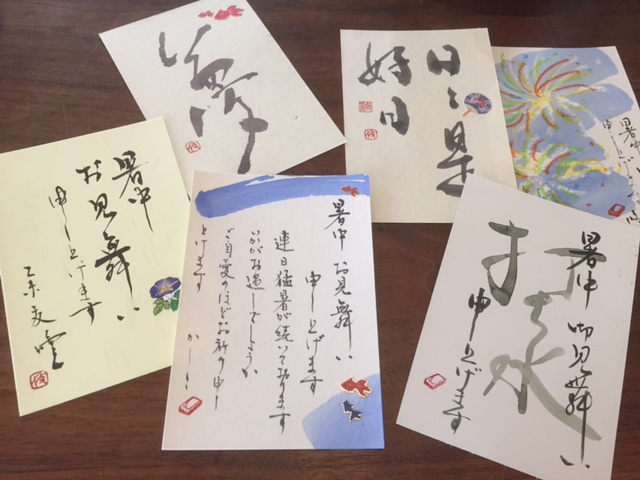 日々是
好日
暑中
申し上げ
暑中
お見舞い
申し上げます
乙未
暑中 お見舞い
申し上げます
連日猛暑が続いて居ります
いかがお過しでしょうか
ご自愛のほどお祈り申し
上げます
かしこ
暑中 御見舞い
申し上げます
打ち水